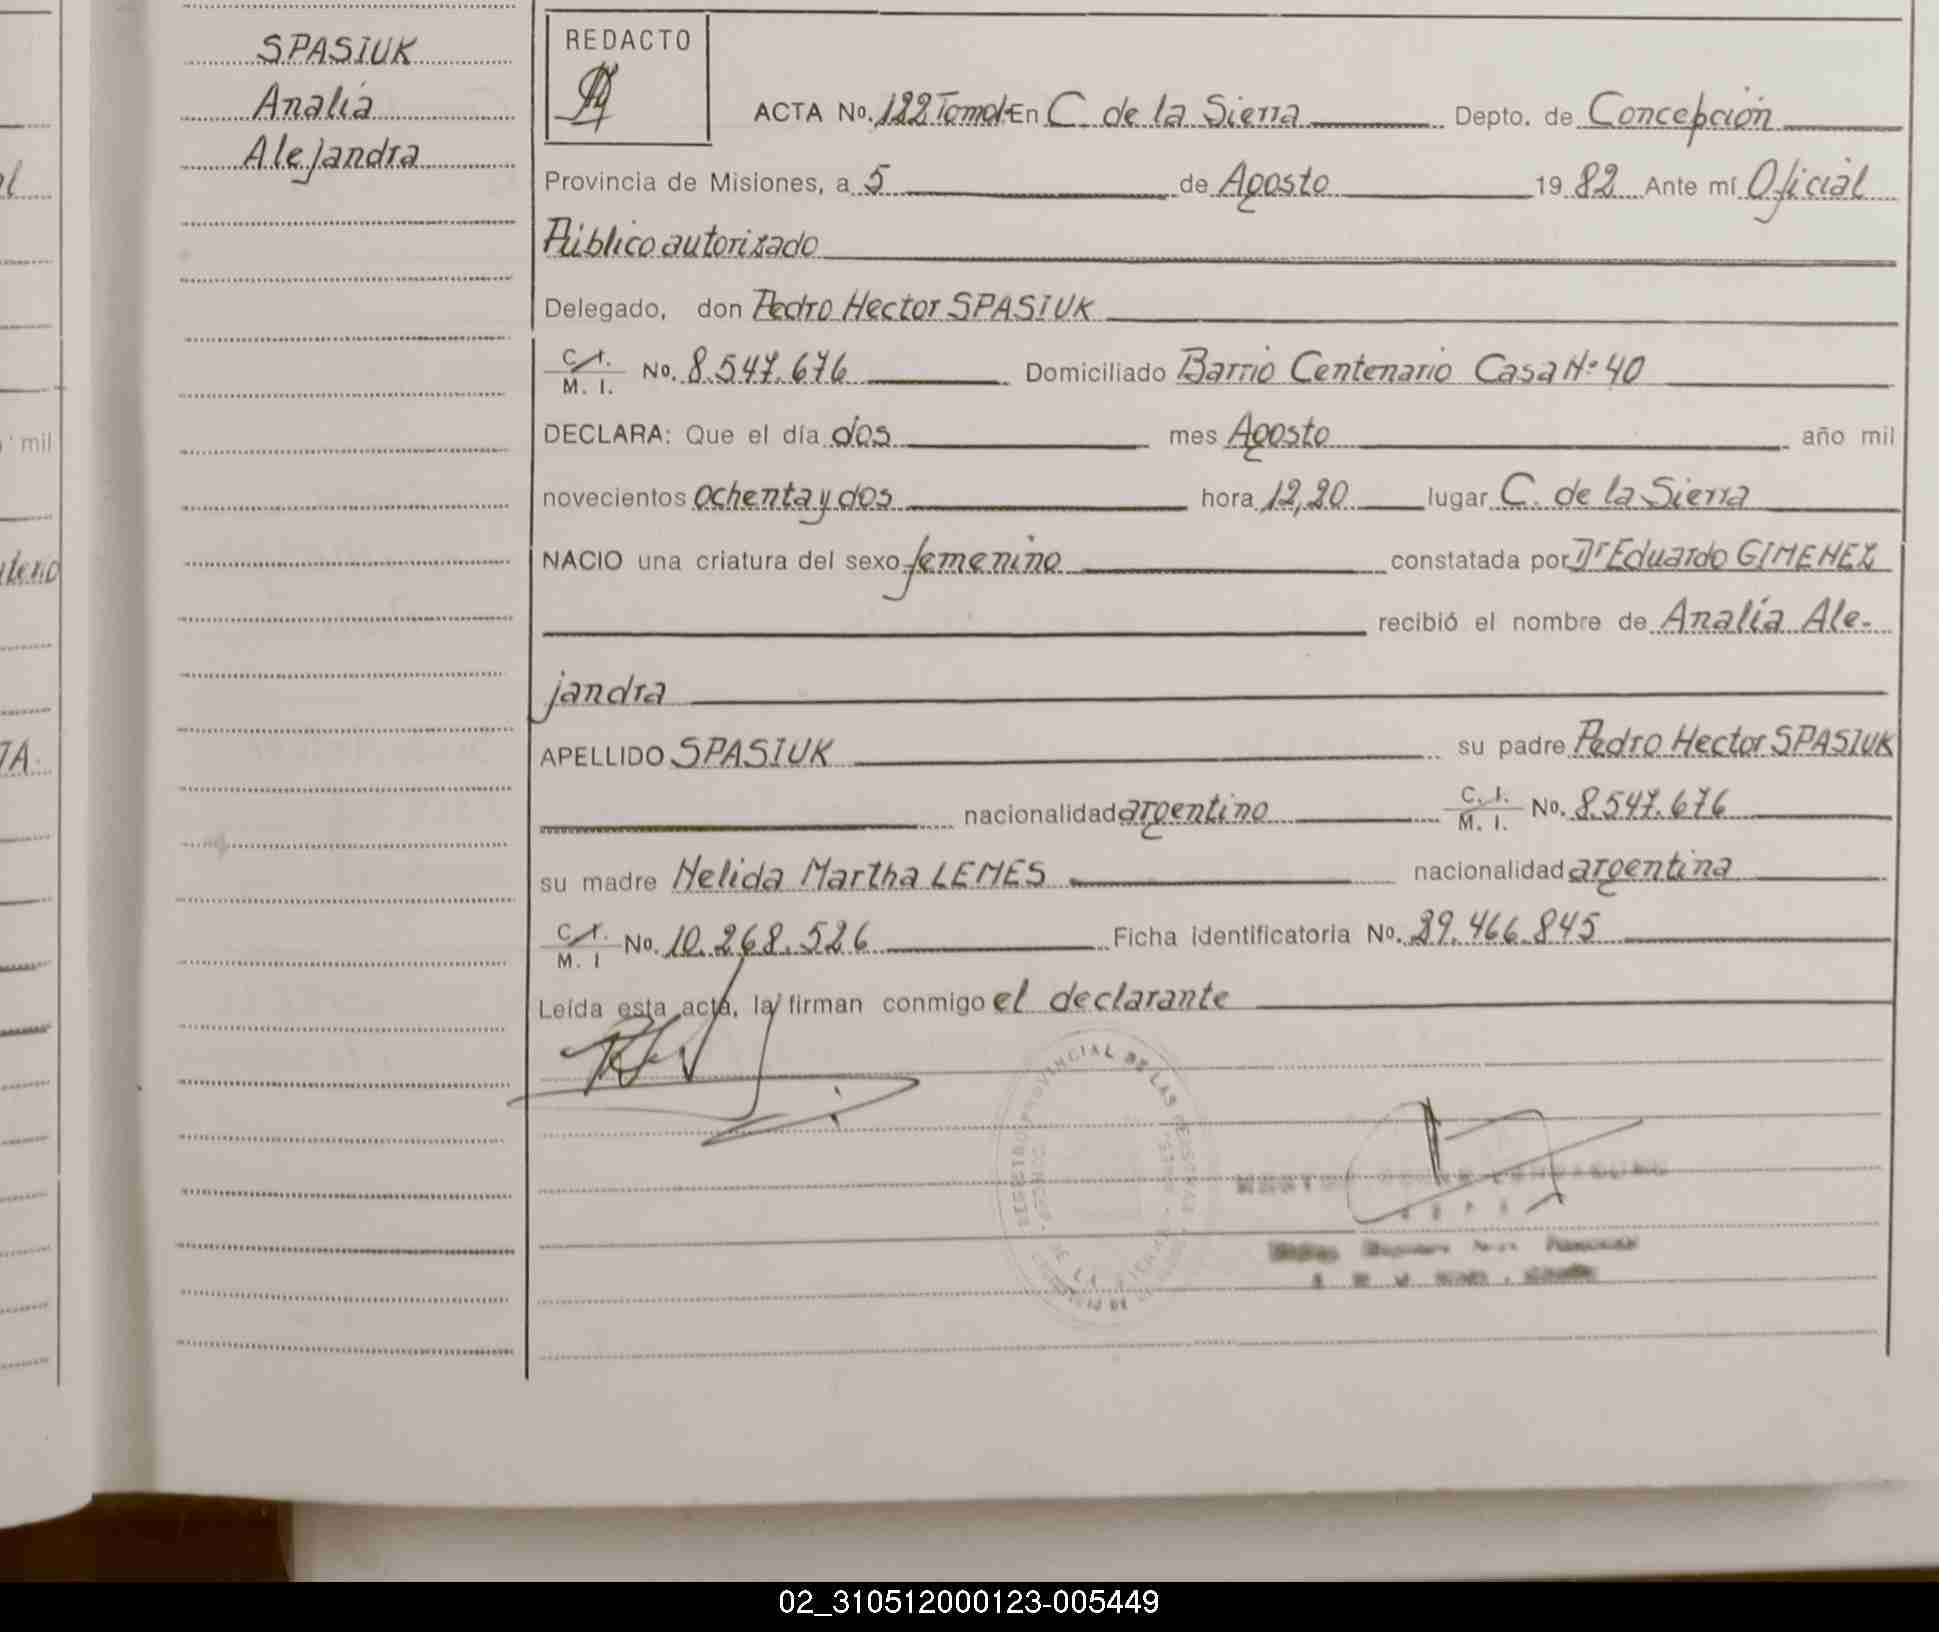 SPASIUK
Analía
Alejandra
REDACTO
ACTA No. 122 Tomo I En C. de la Sierra Depto. de Concepción
Provincia de Misiones, a 5 de Agosto 1982 Ante mí Oficial
Público autorizado
Delegado, don Pedro Hector SPASIUK
C. I.
M. I. No. 8.547.676 Domiciliado Barrio Centenario Casa Nº 40
DECLARA: Que el día dos mes Agosto año mil
novecientos ochenta y dos hora 12,20 lugar C. de la Sierra
NACIO una criatura del sexo femenino constatada por Dr Eduardo GIMENEZ
recibió el nombre de Analía Ale-
jandra
APELLIDO SPASIUK su padre Pedro Hector SPASIUK
nacionalidad argentino C. I.
M. I. No. 8.547.676
su madre Nelida Martha LEMES nacionalidad argentina
C. I.
M. I No. 10.268.526 Ficha identificatoria No. 29.466.845
Leída esta acta, la firman conmigo el declarante
REGISTRO PROVINCIAL DE LAS PERSONAS
mil
TA.
02_310512000123-005449